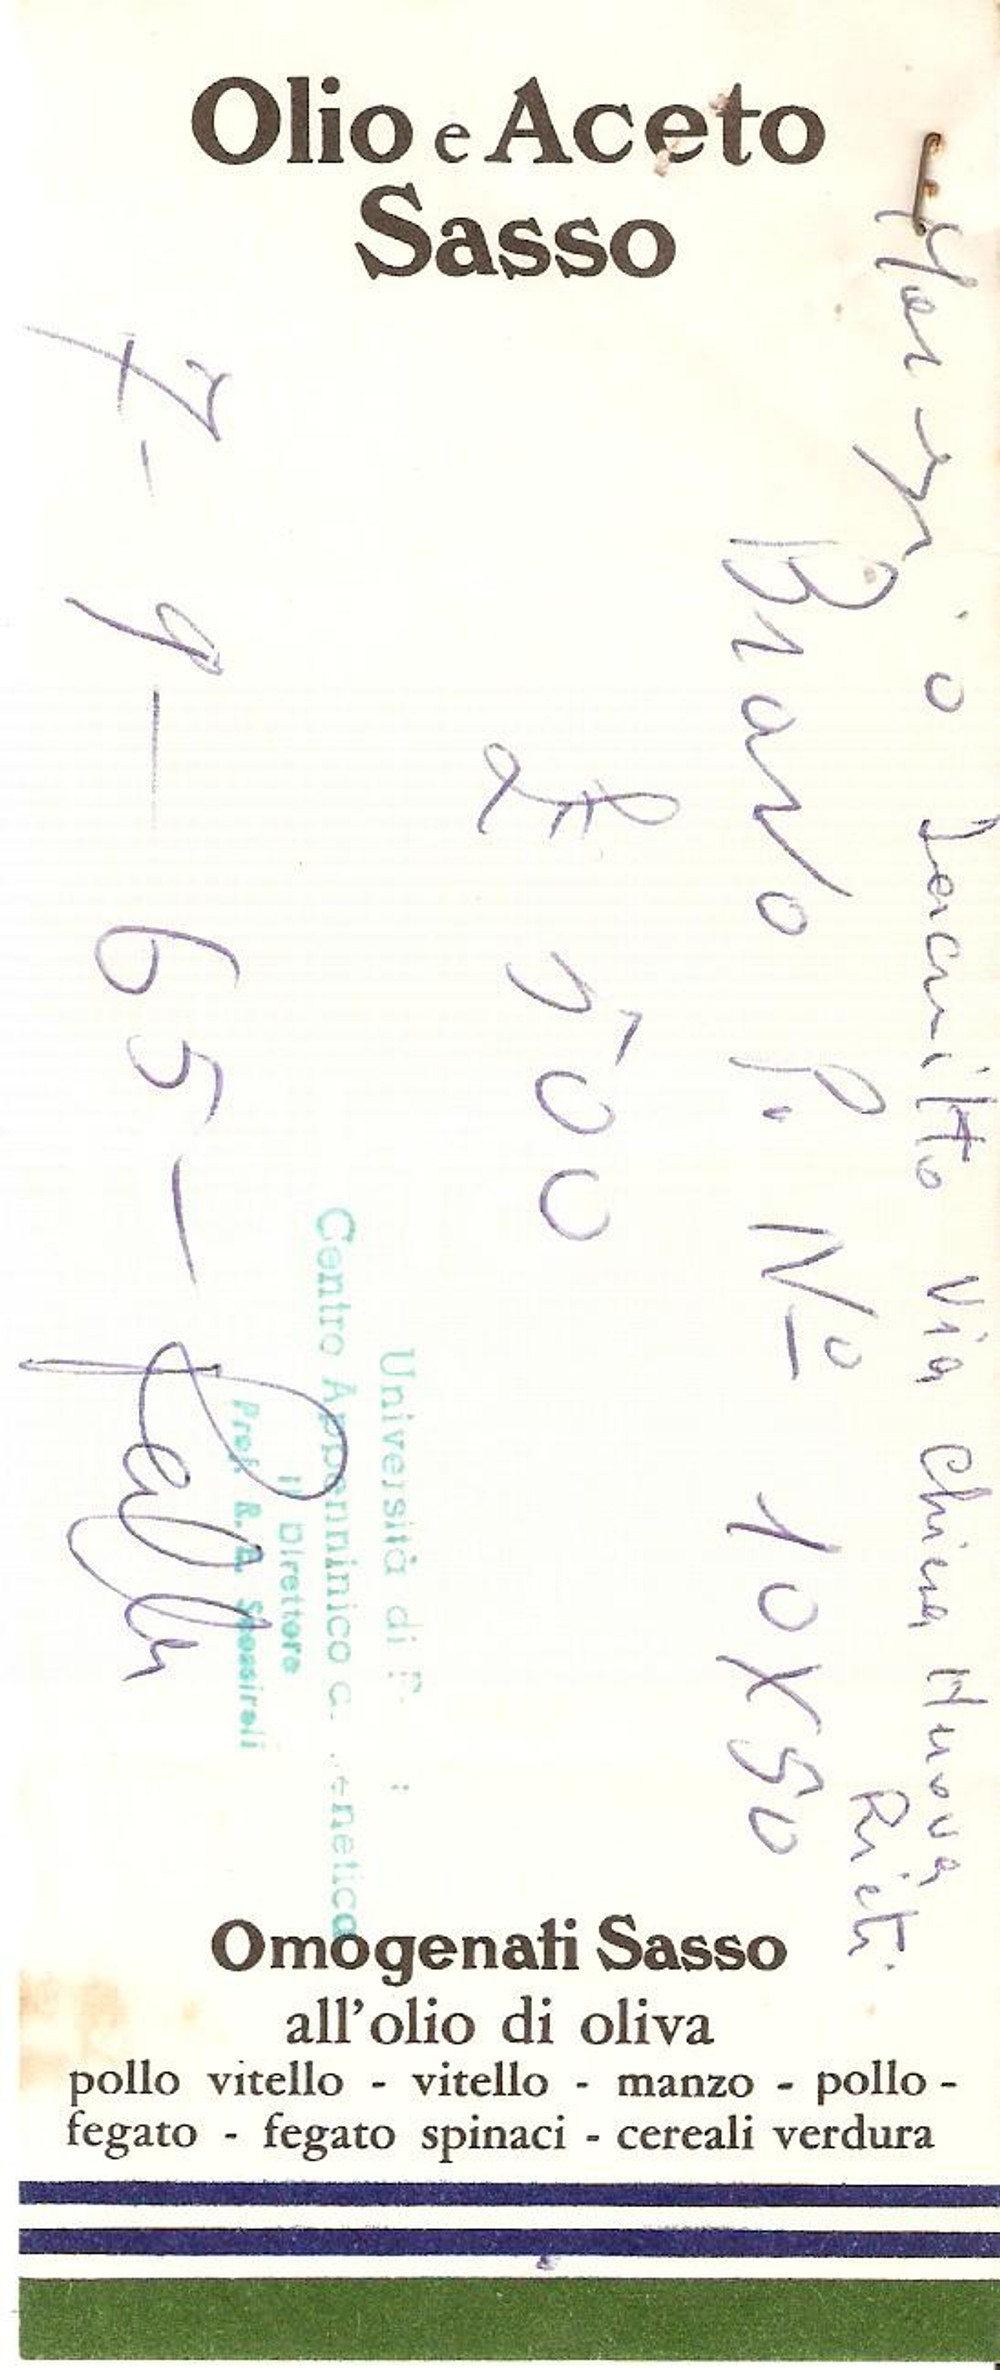 Olio e Aceto
Sasso
Via Chiesa Nuova
Rieti
Bravo P. Nº 10X50
£ 500
Università di
Centro Appenninico
Il Direttore
Prof. R. E. Scossiroli
7-9-65-
Omogenati Sasso
all'olio di oliva
pollo vitello - vitello - manzo - pollo -
fegato - fegato spinaci - cereali verdura